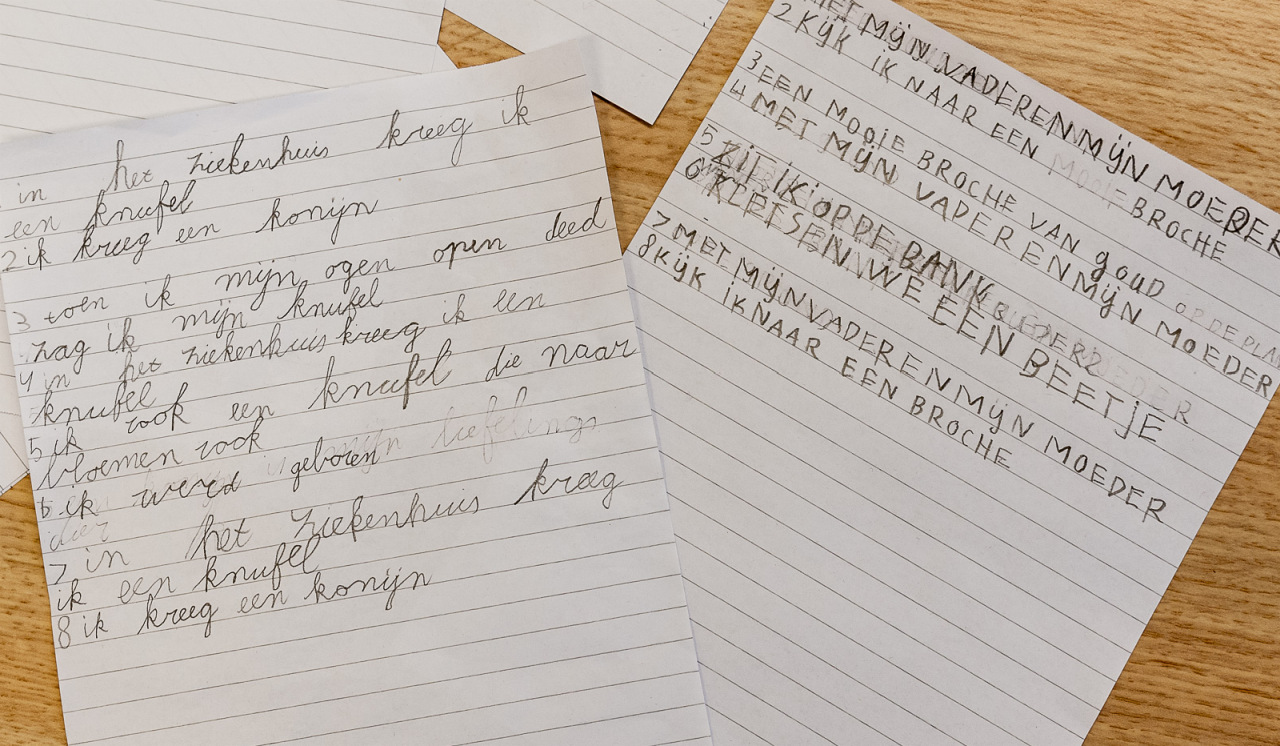 in het ziekenhuis kreeg ik
een knufel
2 ik kreeg een konijn
3 toen ik mijn ogen open deed
zag ik mijn knufel
4 in het ziekenhuis kreeg ik een
knufel
5 ik rook een knufel die naar
bloemen rook
6 ik werd geboren mijn liefelings
dier
7 in het ziekenhuis kræg
ik een knufel
8 ik kreeg een konijn
MET MIJN VADER EN MIJN MOEDER
2 KIJK IK NAAR EEN MOOIE BROCHE
3 EEN MOOIE BROCHE VAN goUD OP DE PLA
4 MET MIJN VADER EN MIJN MOEDER
5 ZIT IK OP DE BANK
6 LEESEN WE EEN BEETJE
7 MET MIJN VADER EN MIJN MOEDER
8 KIJK IK NAAR EEN BROCHE